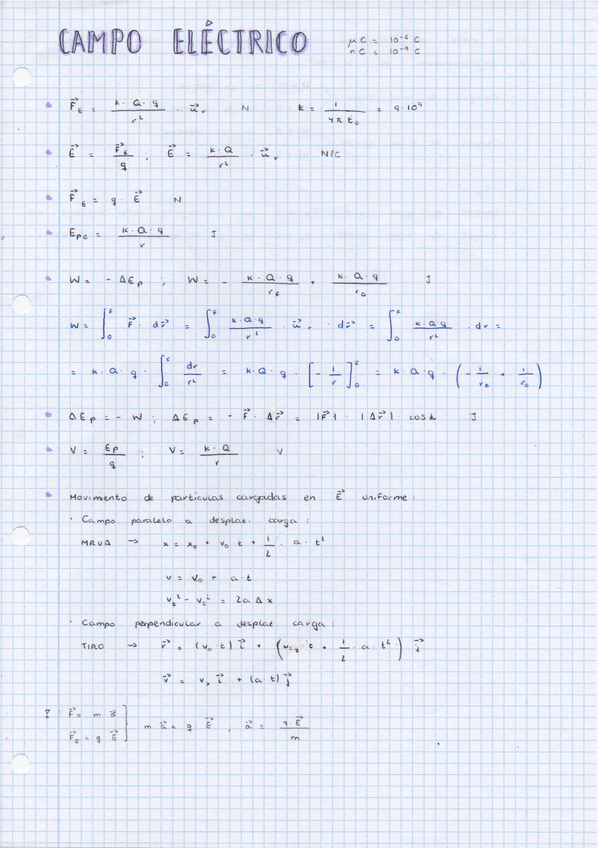 CAMPO ELÉCTRICO
μC = 10⁻⁶ C
nC = 10⁻⁹ C
• F⃗_E = K·Q·q / r² · u⃗_r N K = 1 / 4πε₀ = 9·10⁹
• E⃗ = F⃗_E / q ; E⃗ = K·Q / r² · u⃗_r N/C
• F⃗_E = q · E⃗ N
• E_pe = K·Q·q / r J
• W = - ΔE_p ; W = - K·Q·q / r_F + K·Q·q / r_0 J
W = ∫₀^F F⃗ · dr⃗ = ∫₀^F K·Q·q / r² · u⃗_r · dr⃗ = ∫₀^F K·Q·q / r² · dr =
= K·Q·q · ∫₀^F dr / r² = K·Q·q · [- 1/r]₀^F = K·Q·q · (- 1/r_F + 1/r_0)
• ΔE_p = - W ; ΔE_p = - F⃗ · Δr⃗ = |F⃗| · |Δr⃗| · cos α J
• V = E_p / q ; V = K·Q / r V
• Movimento de partículas cargadas en E⃗ uniforme:
· Campo paralelo a desplat. carga:
MRUA → x = x₀ + v₀ t + 1/2 · a · t²
v = v₀ + a·t
v_F² - v₀² = 2a Δx
· Campo perpendicular a desplat carga:
TIRO → r⃗ = (v₀ t) i⃗ + ( t + 1/2 · a · t²) j⃗
v⃗ = v₀ i⃗ + (a t) j⃗
F⃗ = m a⃗
F⃗_E = q E⃗ } m a⃗ = q E⃗ , a⃗ = q·E⃗ / m